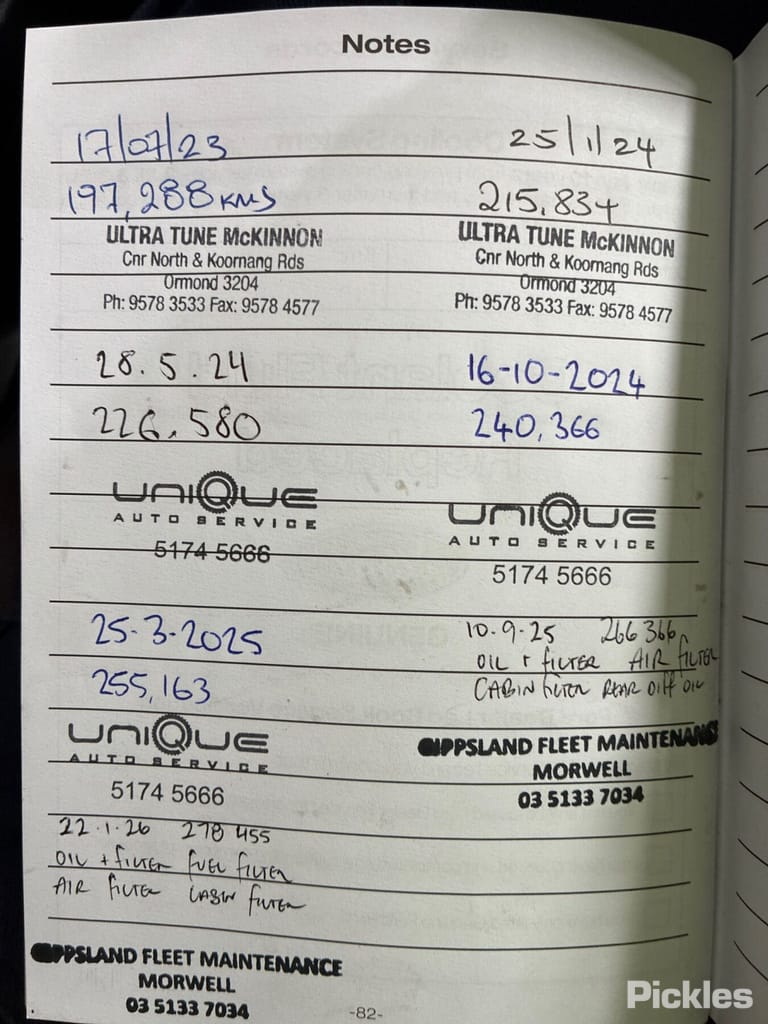 Notes
17/07/23
197,288 KMS
ULTRA TUNE McKINNON
Cnr North & Koornang Rds
Ormond 3204
Ph: 9578 3533 Fax: 9578 4577
25/1/24
215,834
ULTRA TUNE McKINNON
Cnr North & Koornang Rds
Ormond 3204
Ph: 9578 3533 Fax: 9578 4577
28.5.24
226,580
UNIQUE
AUTO SERVICE
5174 5666
16-10-2024
240,366
UNIQUE
AUTO SERVICE
5174 5666
25-3-2025
255,163
UNIQUE
AUTO SERVICE
5174 5666
10.9.25 266 366
OIL + FILTER AIR FILTER
CABIN FILTER REAR DIFF OIL
GIPPSLAND FLEET MAINTENANC
MORWELL
03 5133 7034
22.1.26 278 455
OIL + FILTER FUEL FILTER
AIR FILTER CABIN FILTER
GIPPSLAND FLEET MAINTENANCE
MORWELL
03 5133 7034
-82-
Pickles